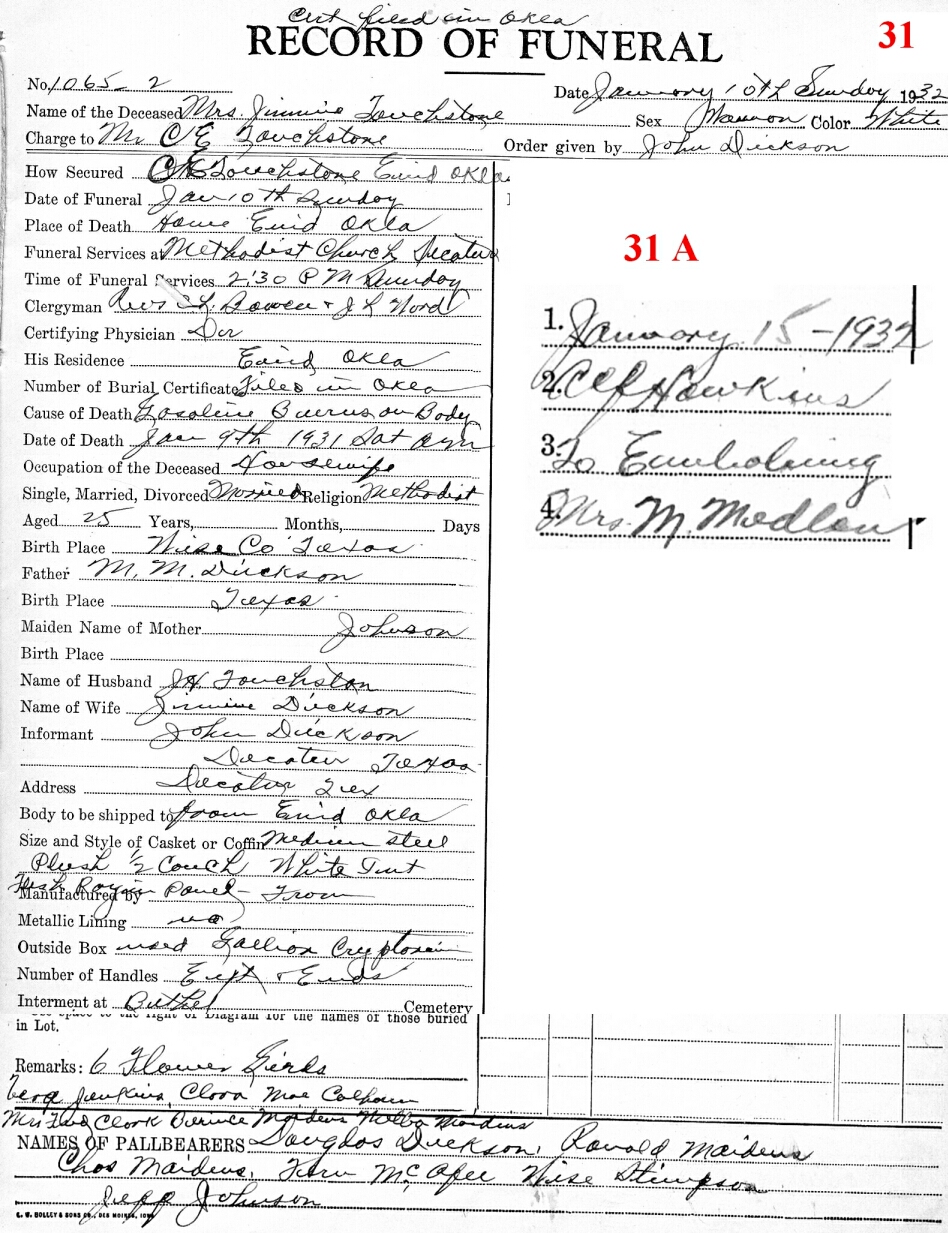 Cert filed in Okla
RECORD OF FUNERAL
31
No. 1065-2
Date January 10th Sunday 1932
Name of the Deceased Mrs. Jimmie Touchstone
Sex Color White
Charge to Mr C E Touchstone
Order given by John Dickson
How Secured C E Touchstone Enid Okla.
Date of Funeral Jan 10th Sunday
Place of Death Home Enid Okla
Funeral Services at Methodist Church Decatur
Time of Funeral Services 2:30 P M Sunday
Clergyman Rev Bowen & J L Word
Certifying Physician Dr
His Residence Enid Okla
Number of Burial Certificate Filed in Okla
Cause of Death Gasoline Burns on Body
Date of Death Jan 9th 1931 Sat
Occupation of the Deceased Housewife
Single, Married, Divorced Married Religion Methodist
Aged 25 Years, Months, Days
Birth Place Wise Co Texas
Father M. M. Dickson
Birth Place Texas
Maiden Name of Mother Johnson
Birth Place
Name of Husband J H. Touchston
Name of Wife Jimmie Dickson
Informant John Dickson
Decatur Texas
Address Decatur Tex
Body to be shipped to from Enid Okla
Size and Style of Casket or Coffin Medium steel
Plush 1/2 Couch White Tint
Manufactured by Panel - From
Metallic Lining no
Outside Box used Gallion
Number of Handles & Ends
Interment at Bethel Cemetery
31 A
1. January 15-1932
2. Hawkins
3. To Embalming
4. Mrs. M. Medlen
use space to the right of Diagram for the names of those buried
in Lot.
Remarks: 6 Flower Girls
Vera Jenkins, Clora Mae Calhoun
Mrs Fred Clark Bernice Maidens Melba Maidens
NAMES OF PALLBEARERS Douglas Dickson, Ronald Maidens
Chas Maidens, Tom McAfee Wise Stimpson
Jeff Johnson
G. W. BOLLEY & SONS CO., DES MOINES, IOWA